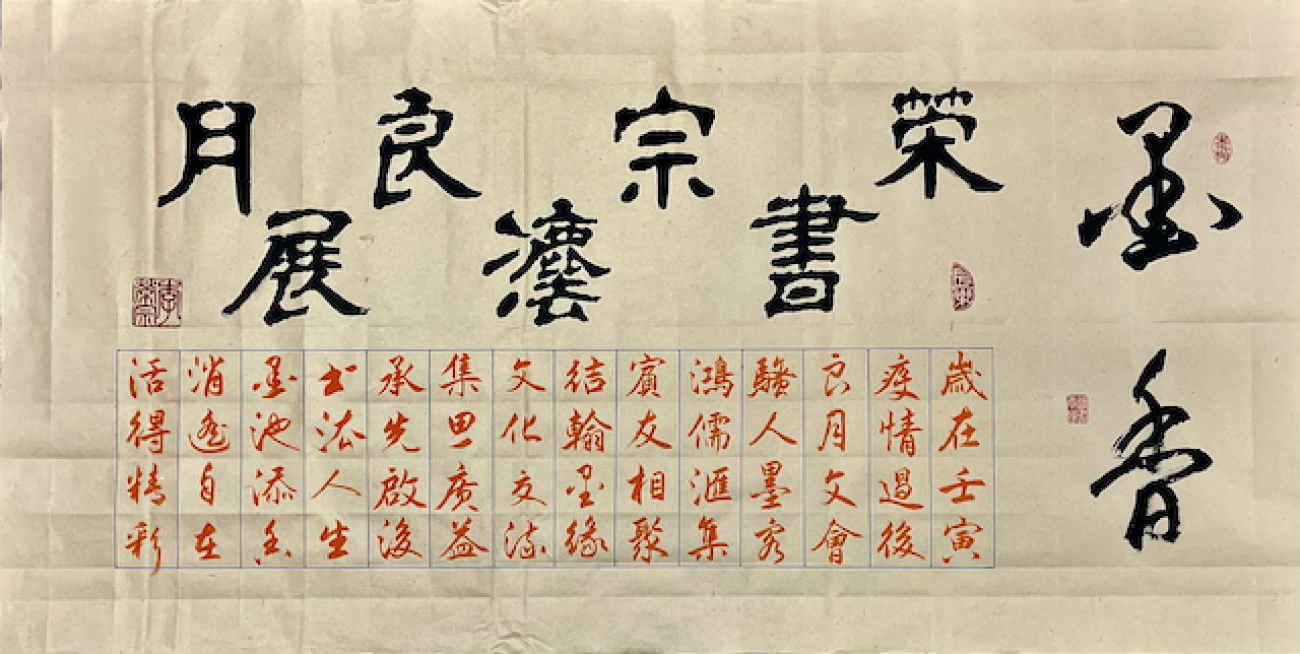 墨香
榮宗良月
書灋展
歲在壬寅
疫情過後
良月文會
騷人墨客
鴻儒滙集
賓友相聚
結翰墨緣
文化交流
集思廣益
承先啟後
书法人生
墨池添香
消遥自在
活得精彩
李榮宗